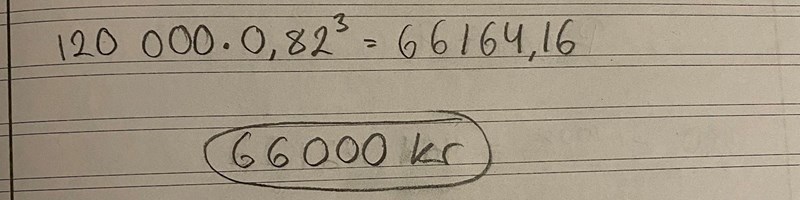 120 000·0,82³ = 66164,16
66000 kr